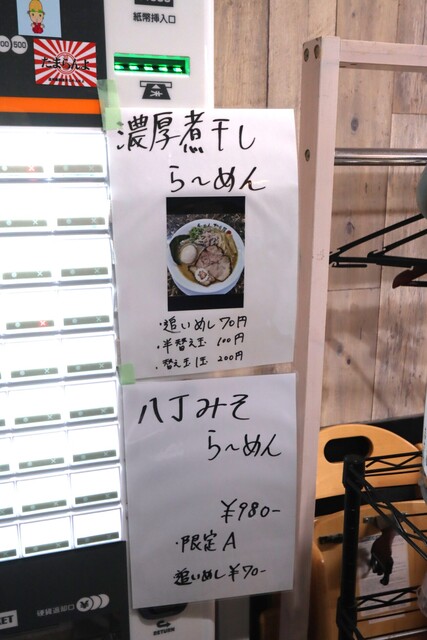 紙幣挿入口
500
たまらんよ
濃厚煮干し
ら〜めん
・追いめし 70円
・半替え玉 100円
・替え玉1玉 200円
八丁みそ
ら〜めん
¥980-
・限定A
追いめし ¥70-
硬貨投入口
RETURN